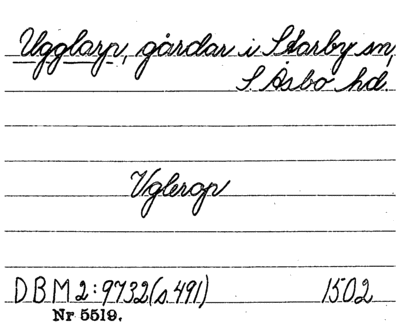 Ugglarp, gårdar i Starby sn,
S. Åsbo hd.
Vglerop
DBM 2:9732 (s. 491) 1502
Nr 5519.